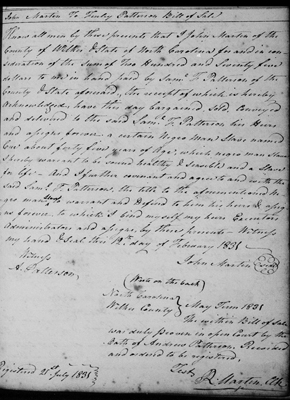 John Martin To Finley Patterson Bill of Sale
Know all men by these presents that I John Martin of the
County of Wilkes & State of North Carolina for and in con
sideration of the Sum of Two Hundred and Seventy five
dollars to me in hand paid by Saml. F. Patterson of the
County & State aforesaid, the receipt of which is hereby
acknowledged, have this day bargained, Sold, Conveyed
and delivered to the said Saml. F. Patterson his Heirs
and assigns forever a certain Negro Man Slave named
about forty five years of Age, which negro man Slave
I hereby warrant to be sound healthy & sensible and a Slave
for life - And I further covenant and agree to and with the
said Saml. F. Patterson, the title to the aforementioned Ne
gro man Slave warrant and Defend to him his heirs & assigns
forever to which I bind myself my heirs Executors
Administrators and assigns, by these presents - Witness
my hand & Seal this 12th day of February 1831
Witness John Martin Seal
A. Patterson
(Write on the back)
North Carolina
Wilkes County May Term 1831
The written Bill of Sale
was duly proven in open Court by the
Oath of Andrew Patterson, Recorded
and ordered to be registered.
Test
R. Martin, Clk
Registered 21st July 1831